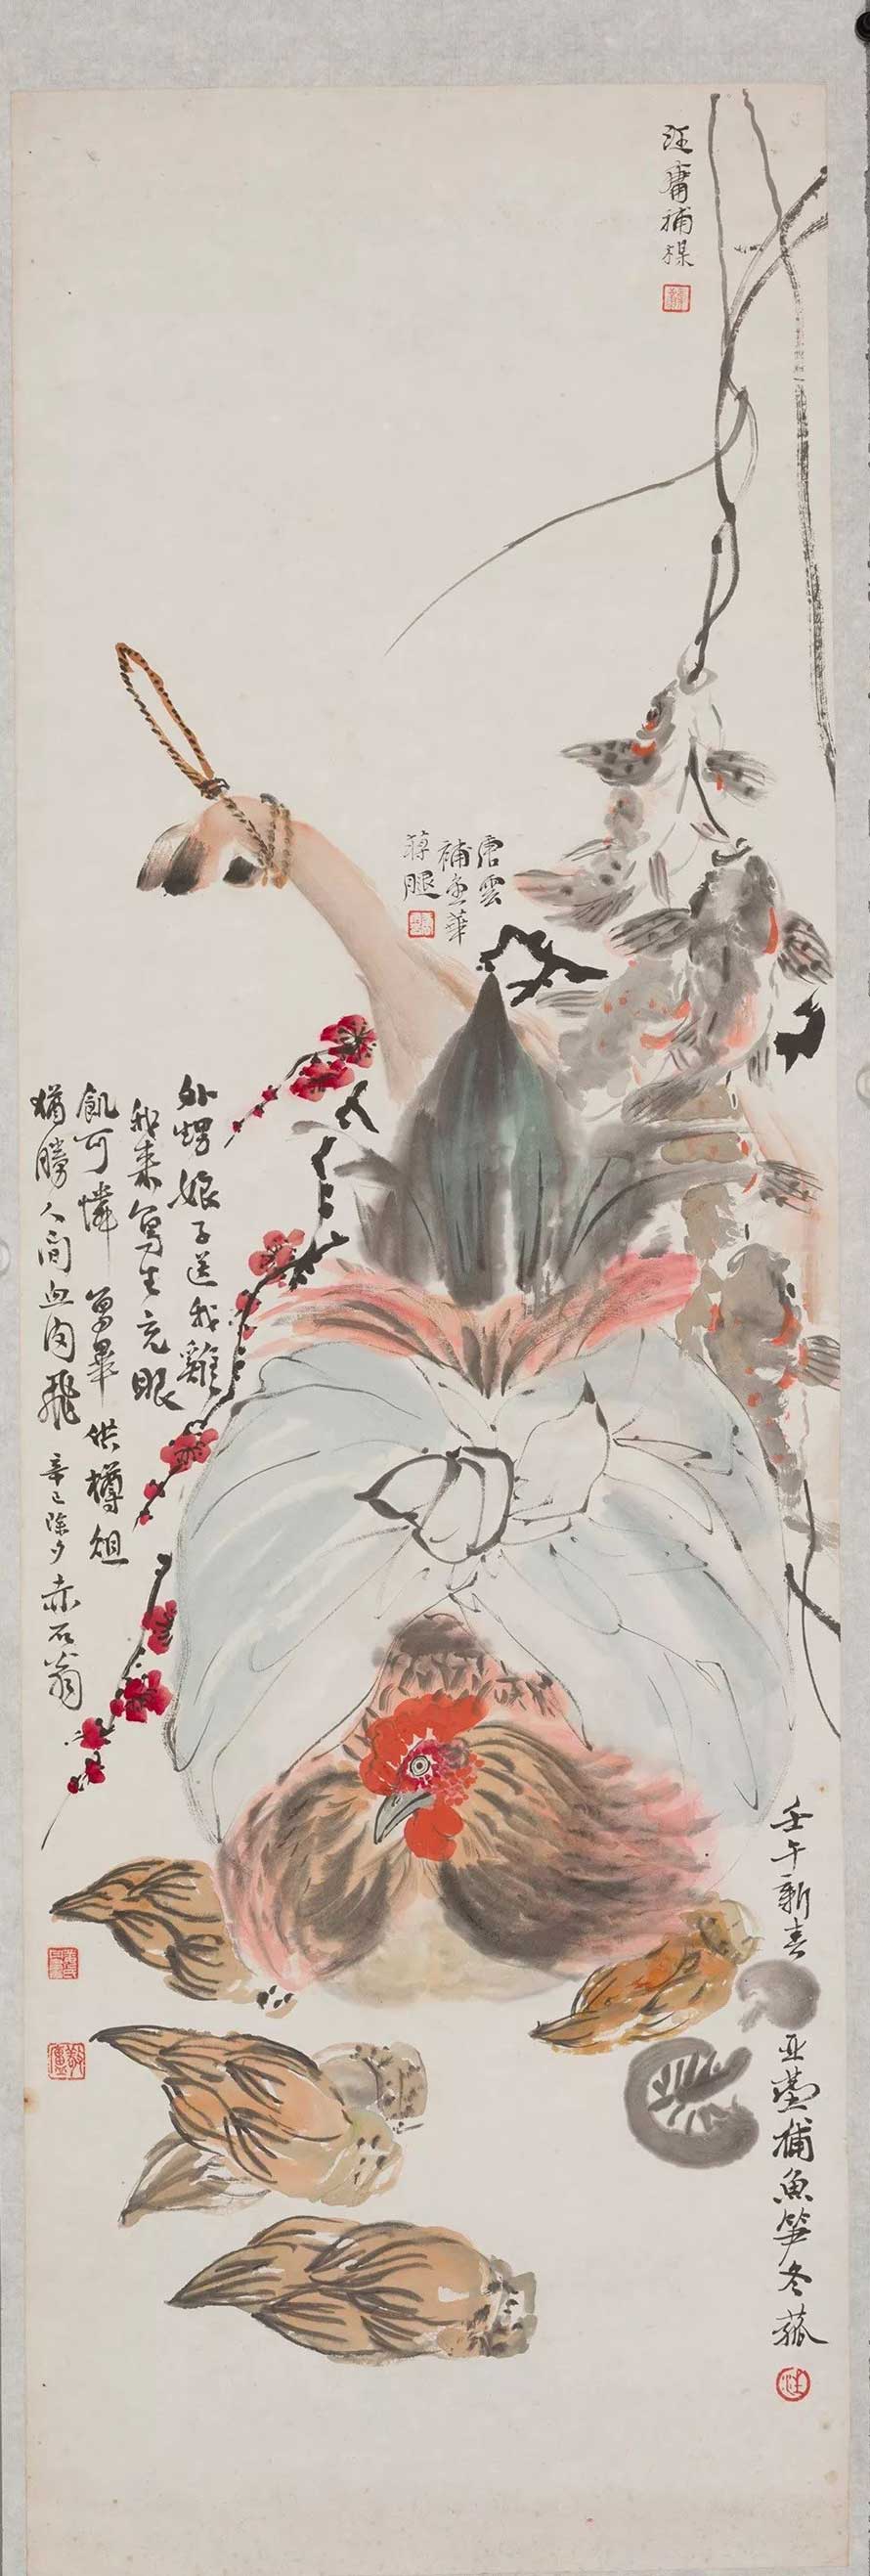 汪庸補楳
唐雲
補金華
蔣腿
外甥娘子送我雞
我來寫生充眼
飢可憐寫畢供樽俎
猶勝人間血肉飛 辛巳除夕 赤石翁
壬午新春 亚塵補魚笋冬菰
汪